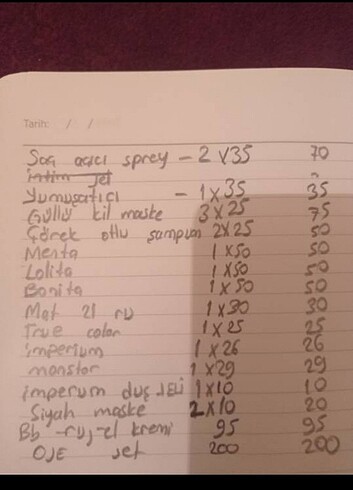 Tarih: / /
Saç açıcı sprey - 2 x 35 70
intim jel
Yumuşatıcı - 1 x 35 35
Güllü kil maske 3 x 25 75
Çörek otlu şampuan 2x25 50
Menta 1 x 50 50
Lolita 1 x 50 50
Bonita 1 x 50 50
Mat 21 ru 1 x 30 30
True color 1 x 25 25
imperium 1 x 26 26
monstor 1 x 29 29
imperum duş jeli 1 x 10 10
Siyah maske 2 x 10 20
Bb -ruj-el kremi 95 95
OJE set 200 200